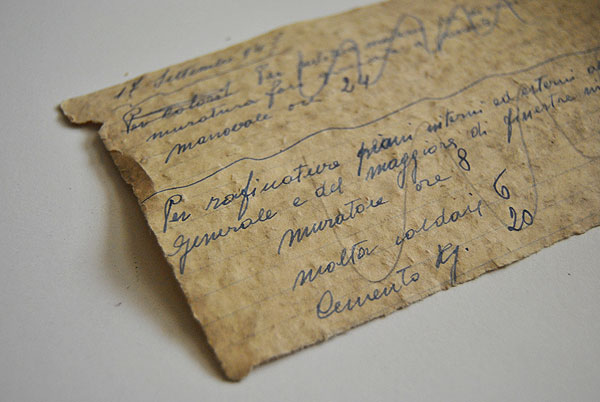 17 Settembre
Per
muratura per
manovale ore 24
Per rafinature piani interni ed esterni
generale e del maggiore di finestre
muratore ore 8
molta coldaie 6
Cemento Kg. 20